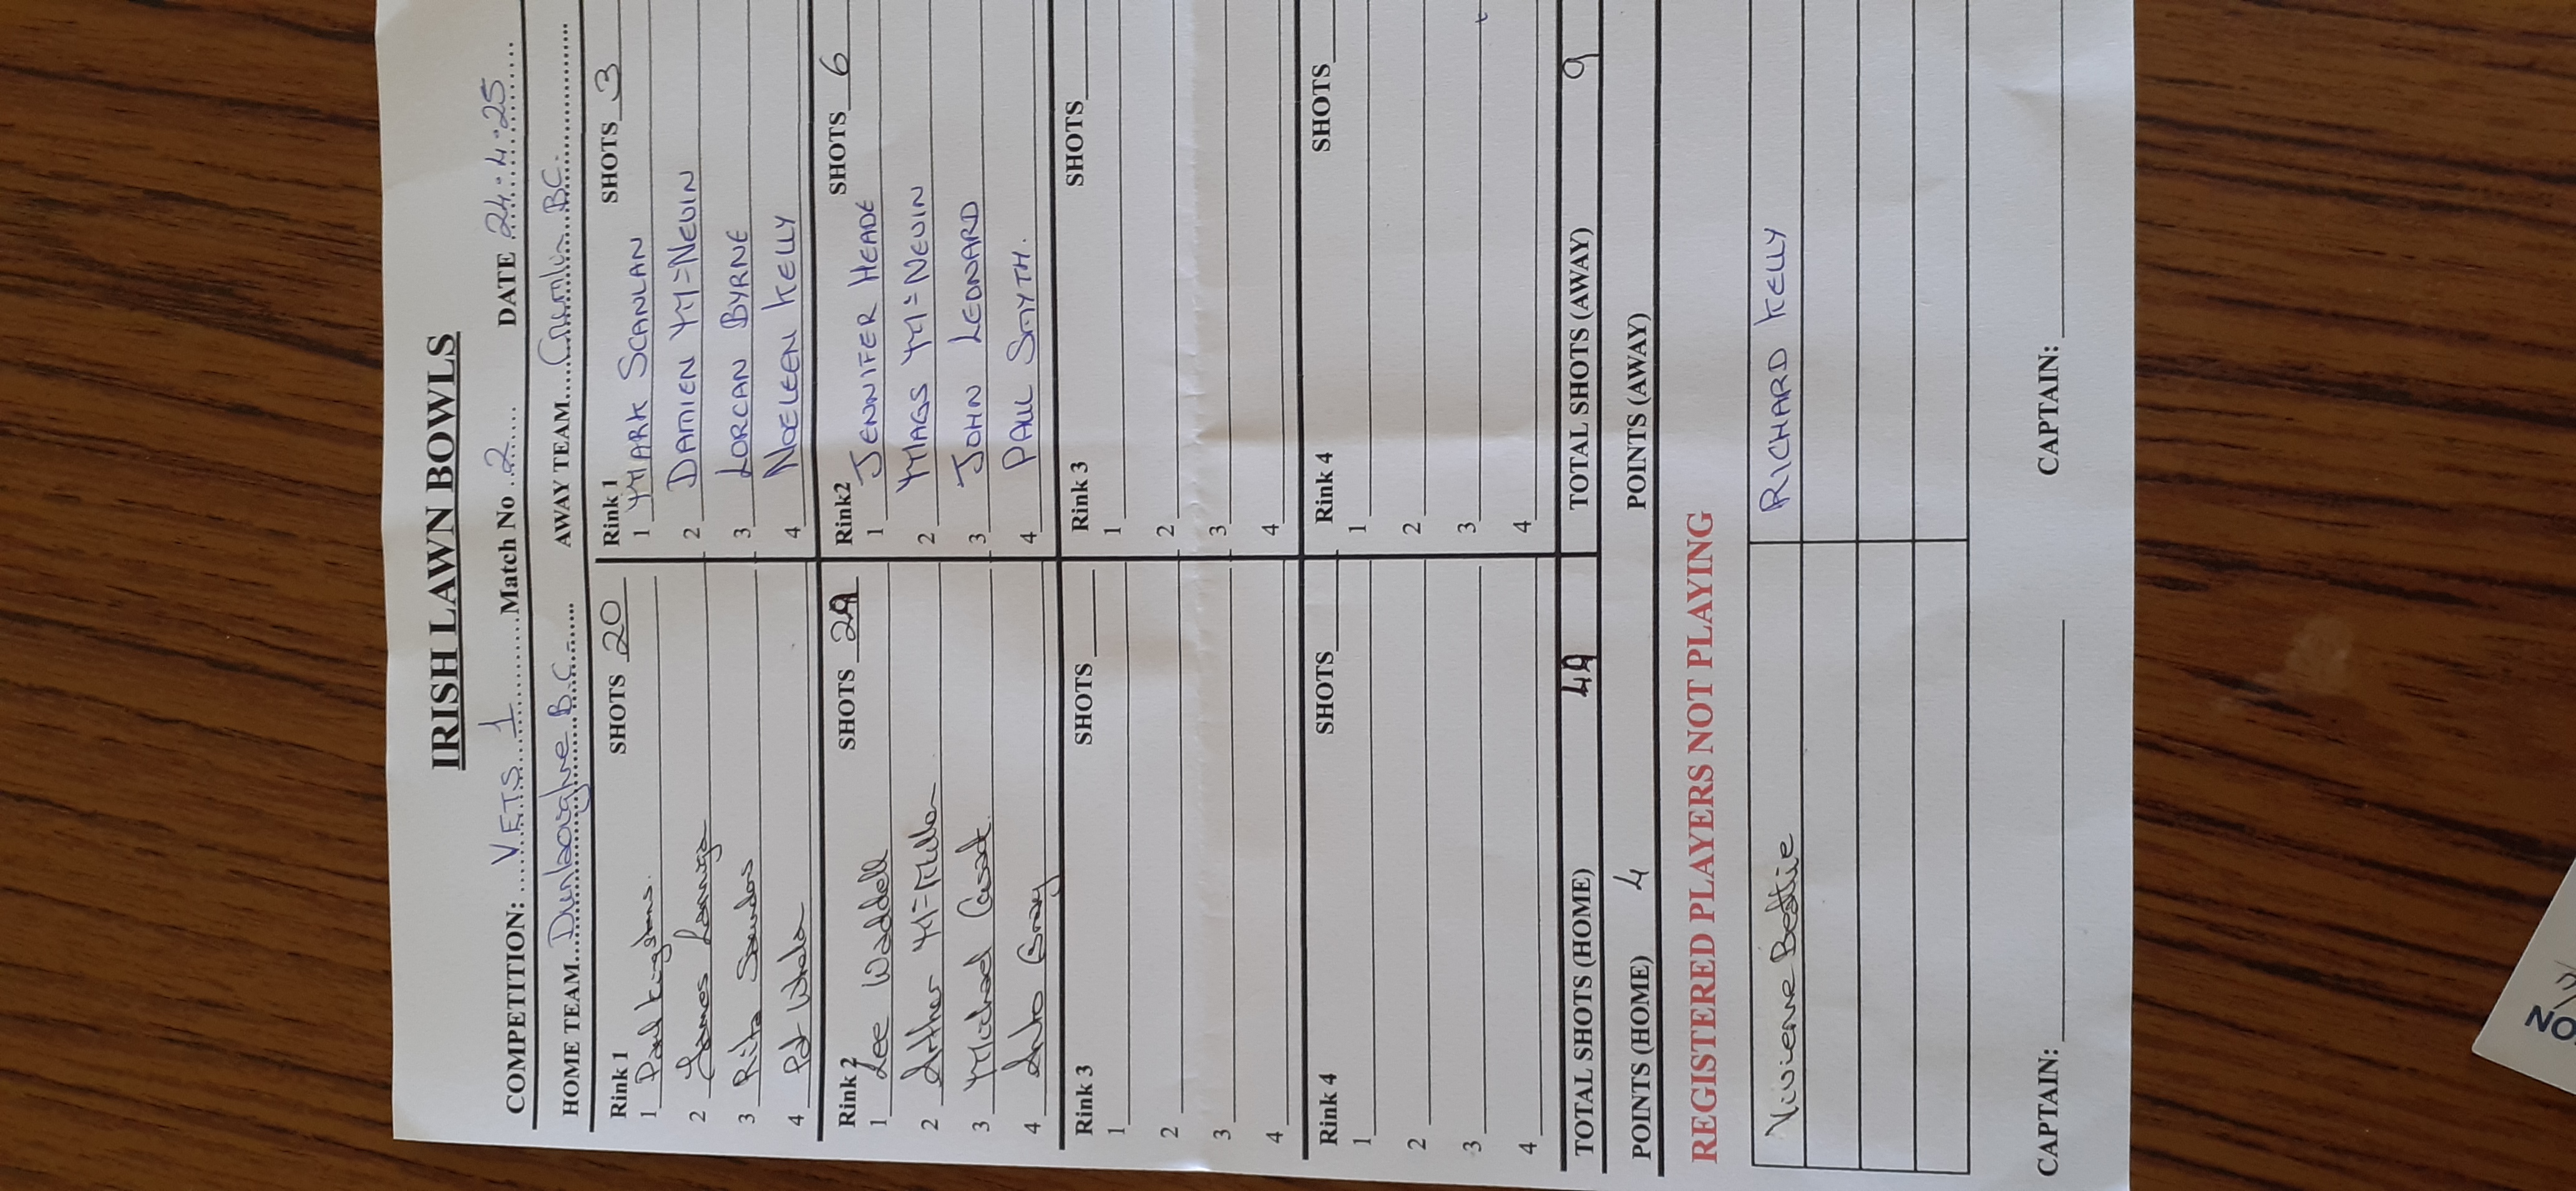 IRISH LAWN BOWLS
COMPETITION: VETS 1 Match No 2 DATE 24.4.25
HOME TEAM Dunlaoughre B.C. AWAY TEAM Crumlin B.C.
Rink 1 SHOTS 20 Rink 1 SHOTS 3
1 Paul Kingstons. 1 MARK SCANLAN
2 James 2 DAMIEN M=NEVIN
3 Rita 3 LORCAN BYRNE
4 Pat 4 NOELEEN KELLY
Rink 2 SHOTS 29 Rink2 SHOTS 6
1 Lee Waddell 1 JENNIFER HEADE
2 Arthur 2 MAGS M=NEVIN
3 Michael 3 JOHN LEONARD
4 Anto Bray 4 PAUL SMYTH.
Rink 3 SHOTS Rink 3 SHOTS
1 1
2 2
3 3
4 4
Rink 4 SHOTS Rink 4 SHOTS
1 1
2 2
3 3
4 4
TOTAL SHOTS (HOME) 49 TOTAL SHOTS (AWAY) 9
POINTS (HOME) 4 POINTS (AWAY)
REGISTERED PLAYERS NOT PLAYING
Vivienne Beattie RICHARD KELLY
CAPTAIN: CAPTAIN:
NO